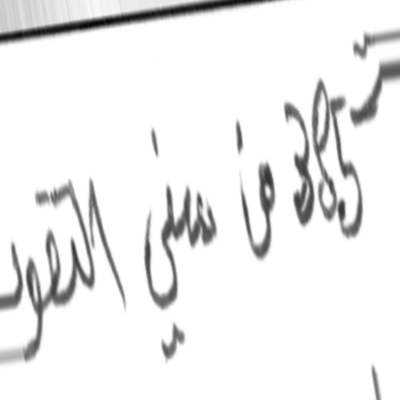 385 من سني التقو